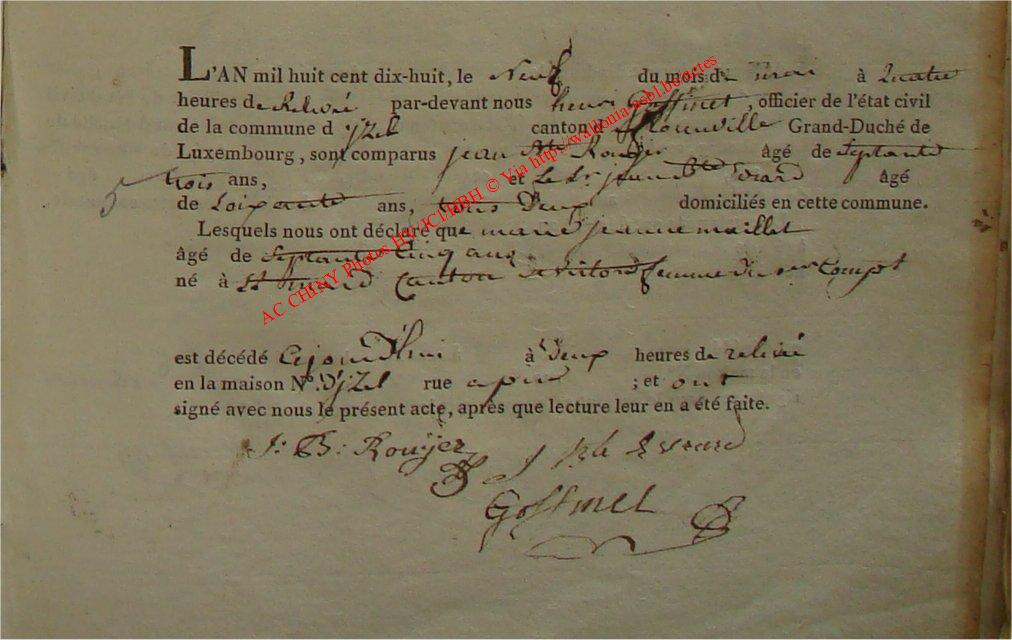 L'AN mil huit cent dix-huit, le Neuf du mois de mai à Quatre
heures de Relevé par-devant nous henri Goffinet, officier de l'état civil
de la commune d jzel canton d florenville Grand-Duché de
Luxembourg, sont comparus jean Bte Rouÿer âgé de Septante
trois ans, et Le Sr jean Bte Evrard âgé
5
de Soixante ans, tous Deux domiciliés en cette commune.
Lesquels nous ont déclaré que marie jeanne maillet
âgé de Septante Cinq ans
né à St Canton de femme du
est décédé Cejourd'hui à Deux heures de relevé
en la maison No. D'jzel rue ; et ont
signé avec nous le présent acte, après que lecture leur en a été faite.
J: B: Rouÿer J Bte Evrard
Goffinet
AC CHINY Photos HV JCI EBH © Via http://wallonia.nebl.be/actes